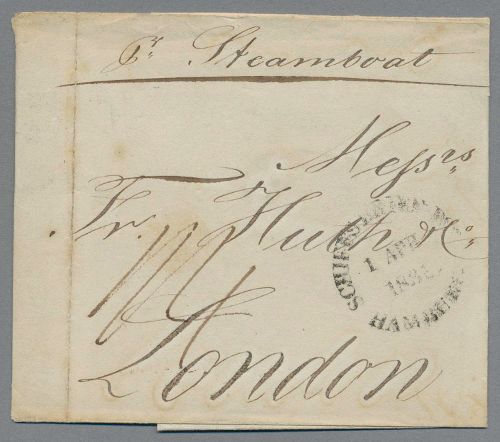 pr. Steamboat
Messrs
Fr. Huth & Co.
London
1 APR
HAMBURG